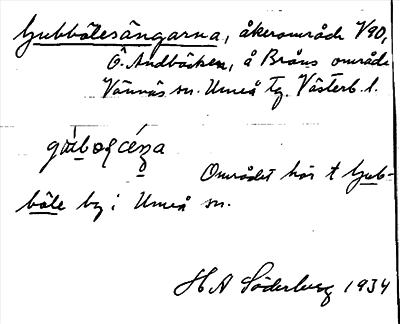 Gubbölesängarna, åkerområde V90,
Ö. Andbäcken, å Bråns område
Vännäs sn. Umeå Tg. Västerb. l.
Området hör t Gub-
böle by i Umeå sn.
H A Söderberg 1934